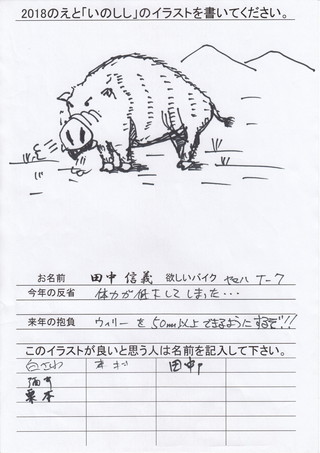 2018のえと「いのしし」のイラストを書いてください。
お名前 田中 信義 欲しいバイク ヤマハ T-7
今年の反省 体力が低下してしまった・・・
来年の抱負 ウィリーを50m以上できるようにするぞ!!
このイラストが良いと思う人は名前を記入して下さい。
白さわ 田中
栗本